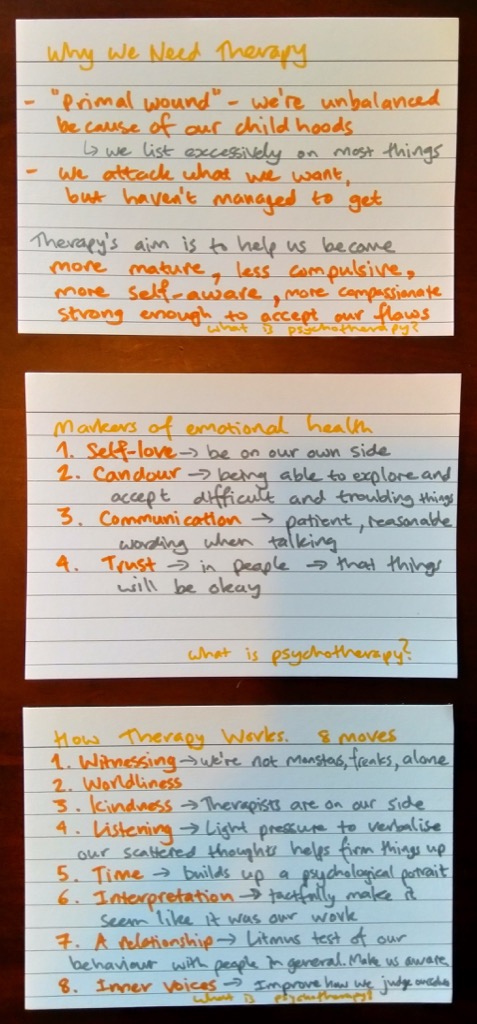 Why We Need Therapy
- "Primal wound" - we're unbalanced
because of our childhoods
↳ we list excessively on most things
- We attack what we want,
but haven't managed to get
Therapy's aim is to help us become
more mature, less compulsive,
more self-aware, more compassionate
strong enough to accept our flaws
What is psychotherapy?
Markers of emotional health
1. Self-love → be on our own side
2. Candour → being able to explore and
accept difficult and troubling things
3. Communication → patient, reasonable
wording when talking
4. Trust → in people → that things
will be okay
What is psychotherapy?
How Therapy Works. 8 moves
1. Witnessing → we're not monsters, freaks, alone
2. Worldliness
3. Kindness → Therapists are on our side
4. Listening → Light pressure to verbalise
our scattered thoughts helps firm things up
5. Time → builds up a psychological portrait
6. Interpretation → tactfully make it
seem like it was our work
7. A relationship → Litmus test of our
behaviour with people in general. Make us aware
8. Inner voices → Improve how we judge ourselves
What is psychotherapy?